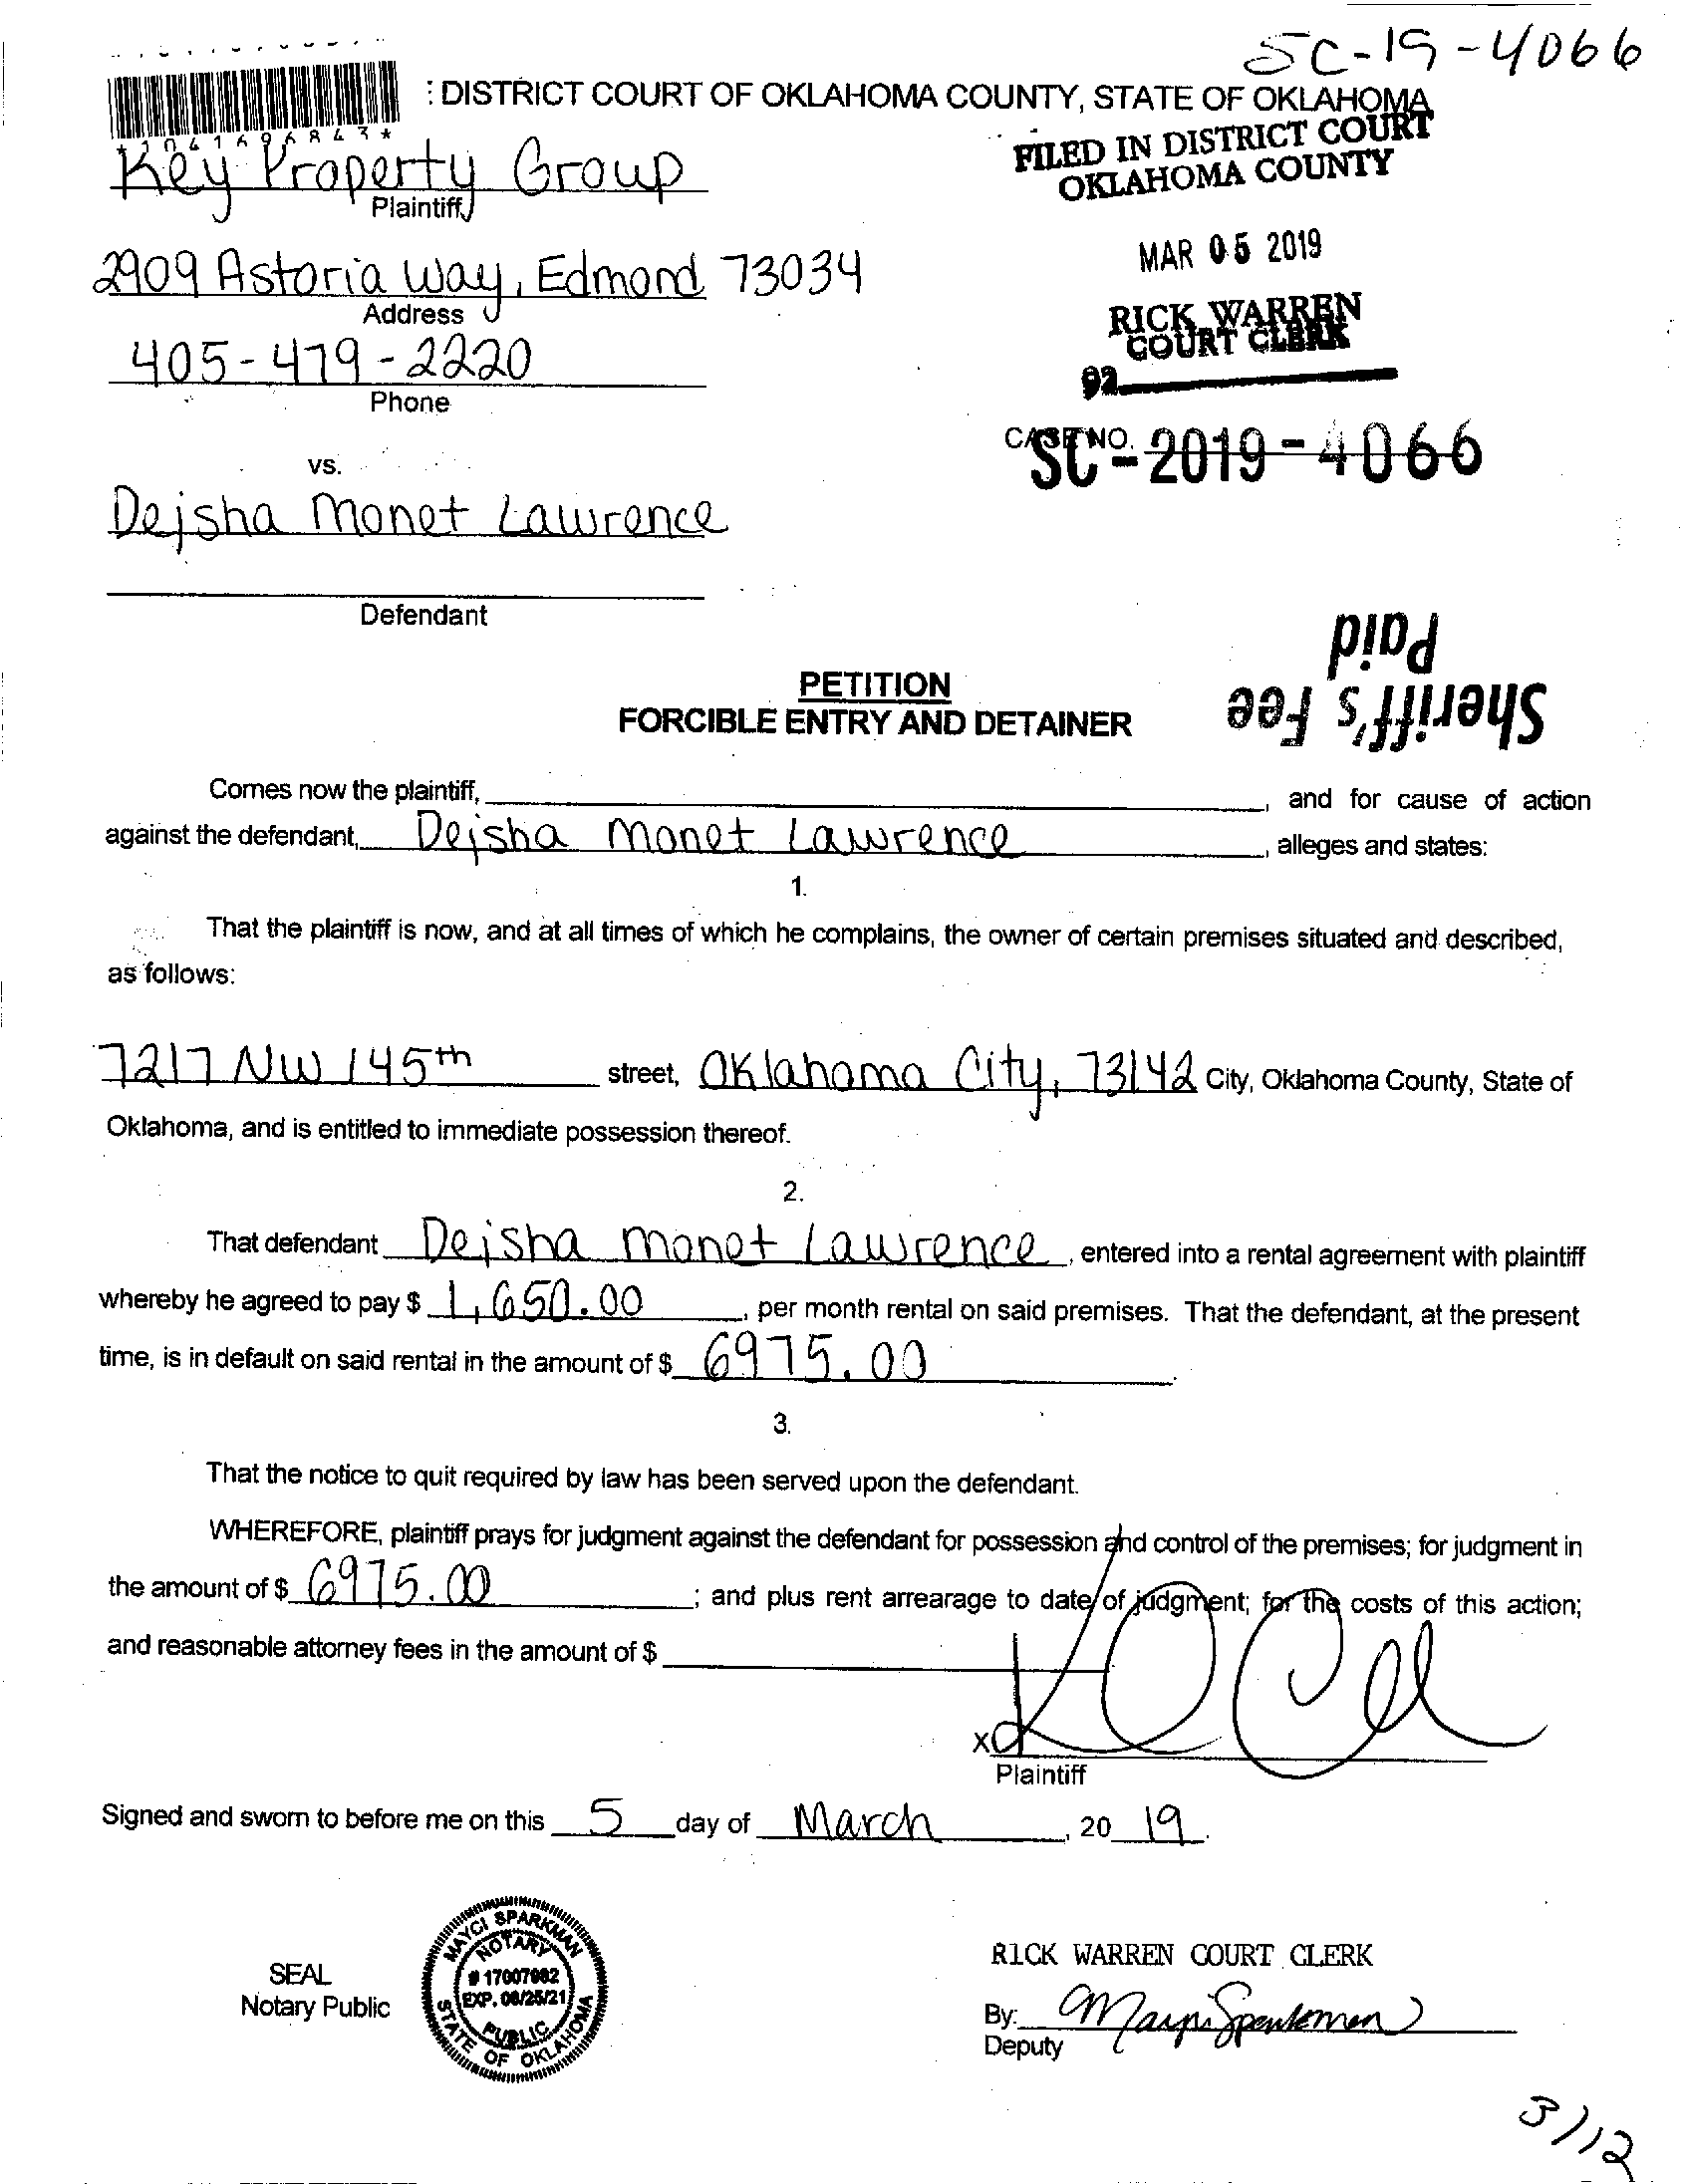 SC-19-4066
: DISTRICT COURT OF OKLAHOMA COUNTY, STATE OF OKLAHOMA
*1041696843*
FILED IN DISTRICT COURT
OKLAHOMA COUNTY
Key Property Group
Plaintiff
MAR 05 2019
2909 Astoria Way, Edmond 73034
Address
RICK WARREN
COURT CLERK
405-479-2220
Phone
92
CASE NO.
SC-2019-4066
vs.
Dejsha Monet Lawrence
Defendant
Sheriff's Fee
Paid
PETITION
FORCIBLE ENTRY AND DETAINER
Comes now the plaintiff, , and for cause of action
against the defendant, Dejsha Monet Lawrence, alleges and states:
1.
That the plaintiff is now, and at all times of which he complains, the owner of certain premises situated and described,
as follows:
7217 NW 145th street, Oklahoma City, 73142 City, Oklahoma County, State of
Oklahoma, and is entitled to immediate possession thereof.
2.
That defendant Dejsha Monet Lawrence, entered into a rental agreement with plaintiff
whereby he agreed to pay $ 1,650.00, per month rental on said premises. That the defendant, at the present
time, is in default on said rental in the amount of $ 6975.00.
3.
That the notice to quit required by law has been served upon the defendant.
WHEREFORE, plaintiff prays for judgment against the defendant for possession and control of the premises; for judgment in
the amount of $ 6975.00; and plus rent arrearage to date of judgment; for the costs of this action;
and reasonable attorney fees in the amount of $
X
Plaintiff
Signed and sworn to before me on this 5 day of March, 20 19.
SEAL
Notary Public
MAYCI SPARKMAN
NOTARY
# 17007982
EXP. 08/25/21
PUBLIC
STATE OF OKLAHOMA
RICK WARREN COURT CLERK
By: Mayci Sparkman
Deputy
3/12